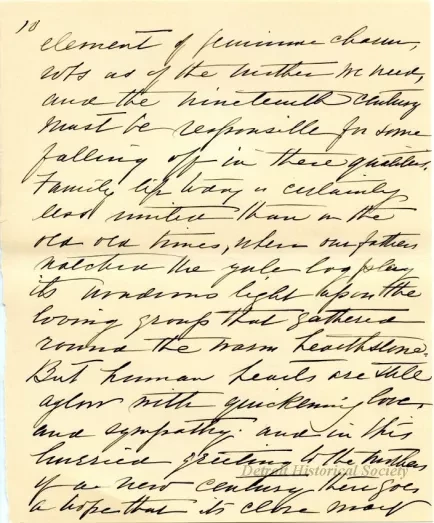 18
element of feminine charm,
as of the mother we need,
and the nineteenth century
must be responsible for some
falling off in these qualities.
Family life today is certainly
less united than in the
old old times, where our fathers
watched the yule log play
its wondrous light upon the
loving group that gathered
round the warm hearthstone.
But human hearts are still
aglow with quickening love,
and sympathy. and in this
hurried greeting to the mothers
of a new century there goes
a hope that its close may
Detroit Historical Society